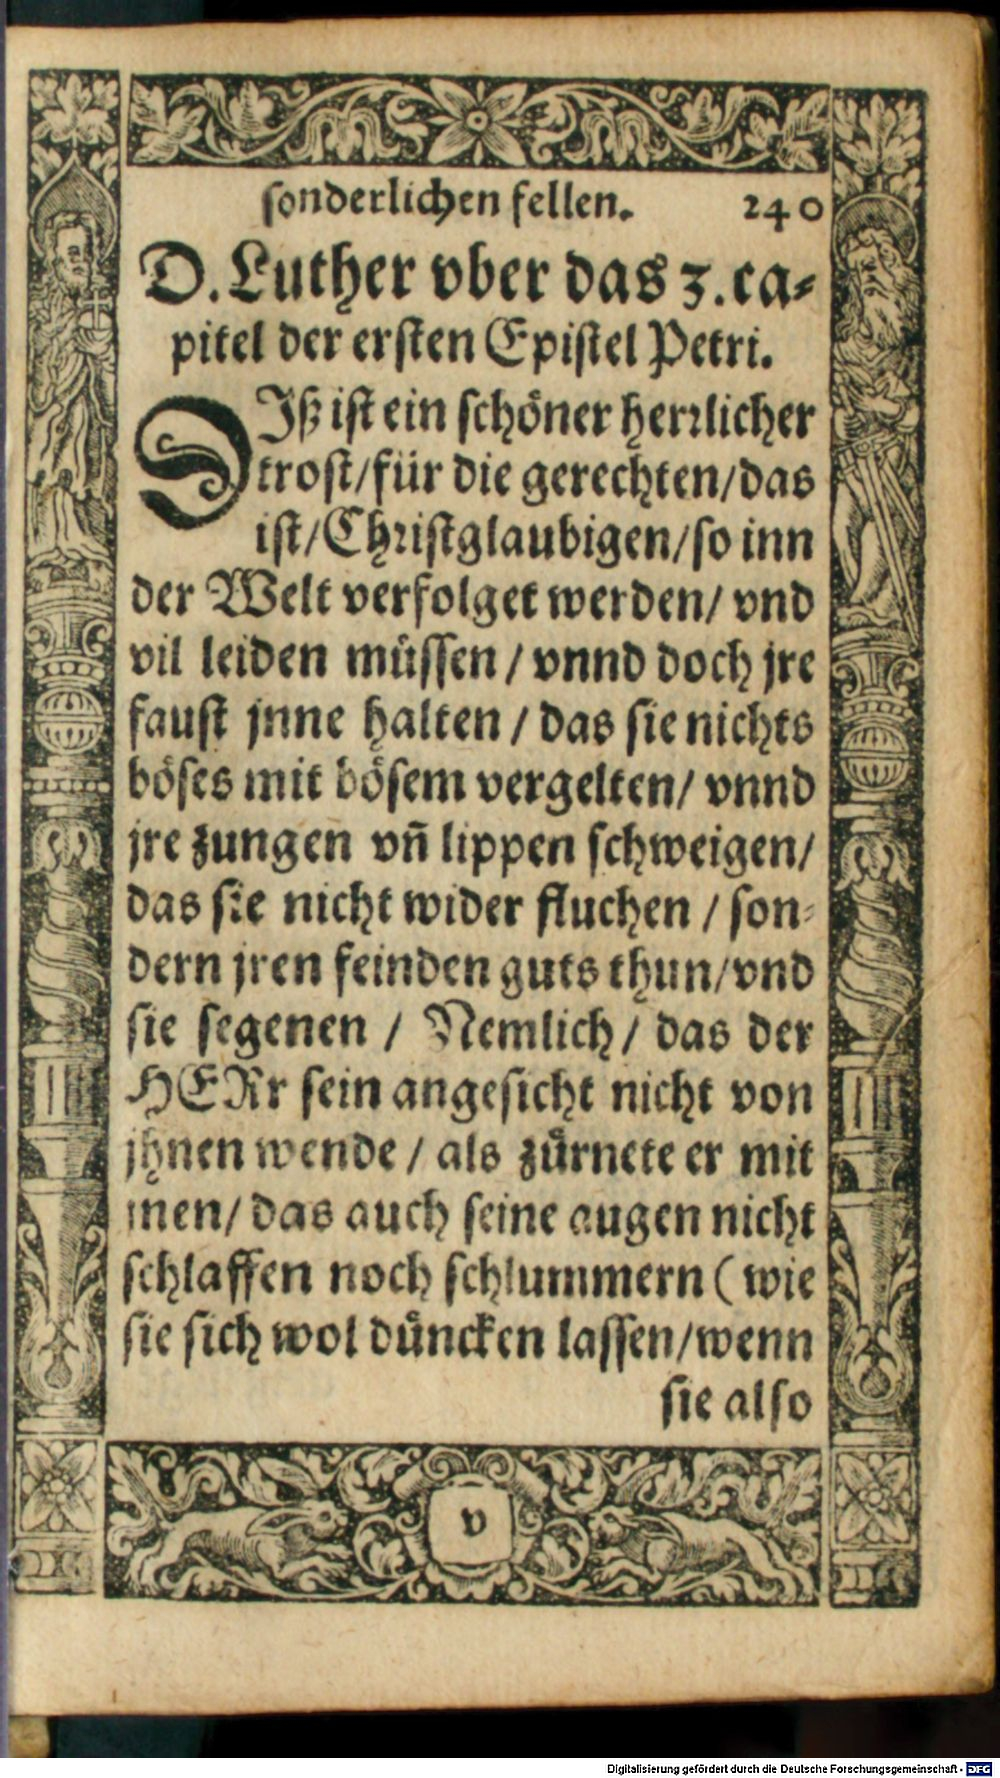 sonderlichen fellen. 240
D. Luther vber das 3. ca⸗
pitel der ersten Epistel Petri.
DIß ist ein schöner herrlicher
trost/für die gerechten/das
ist/Christglaubigen/so inn
der Welt verfolget werden/ vnd
vil leiden müssen / vnnd doch jre
faust jnne halten / das sie nichts
böses mit bösem vergelten/ vnnd
jre zungen vñ lippen schweigen/
das sie nicht wider fluchen / son⸗
dern jren feinden guts thun/vnd
sie segenen / Nemlich/ das der
HERr sein angesicht nicht von
jhnen wende / als zůrnete er mit
jnen/ das auch seine augen nicht
schlaffen noch schlummern ( wie
sie sich wol důncken lassen/wenn
sie also
v
Digitalisierung gefördert durch die Deutsche Forschungsgemeinschaft - DFG